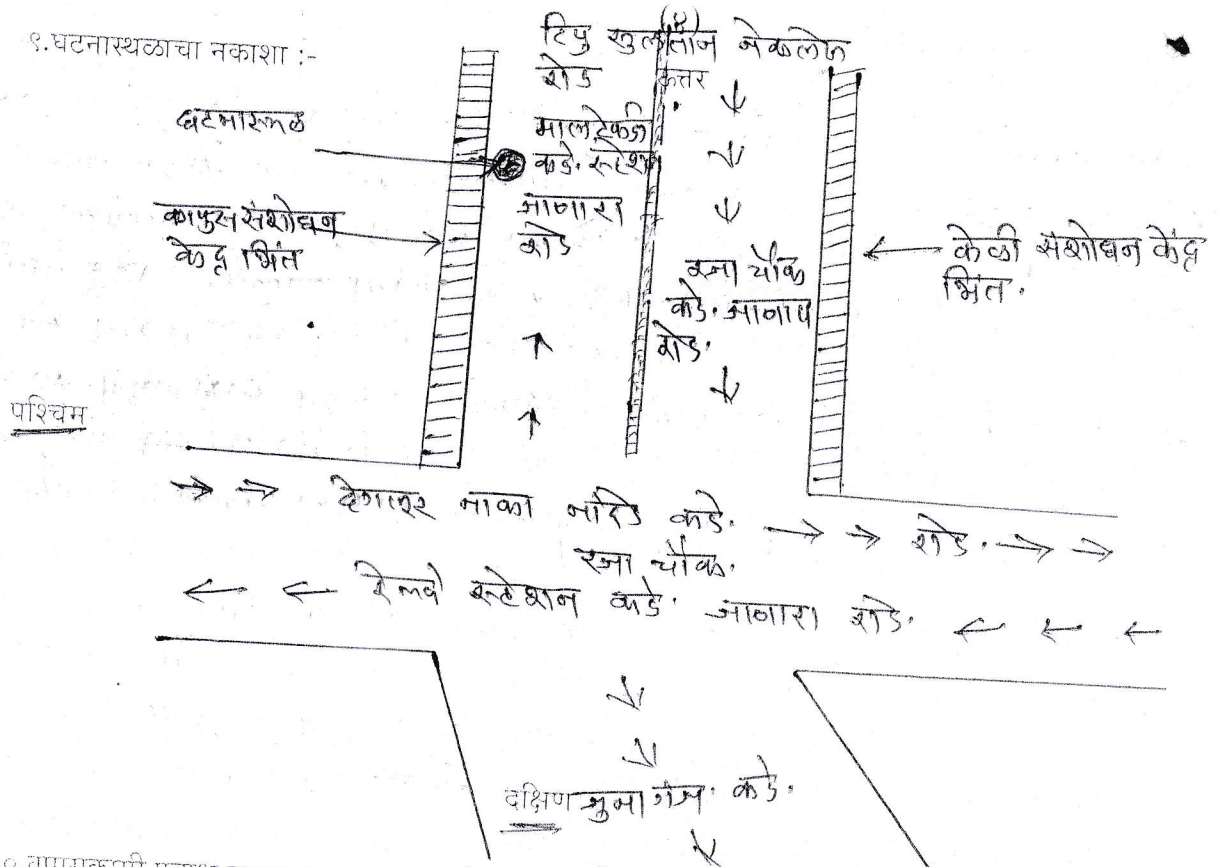 ९.घटनास्थळाचा नकाशा :-
(४)
टिपु सुलतान
रोड
उत्तर
घटनास्थळ
मालटेकडी
कडे. स्टेशन
जाणारा
रोड
कापुस संशोधन
केंद्र भिंत
रजा चौक
कडे. जाणारा
रोड.
केळी संशोधन केंद्र
भिंत.
पश्चिम
देगलूर नाका नांदेड कडे. रोड.
रजा चौक.
रेल्वे स्टेशन कडे. जाणारा रोड.
दक्षिण जुनागंज. कडे.